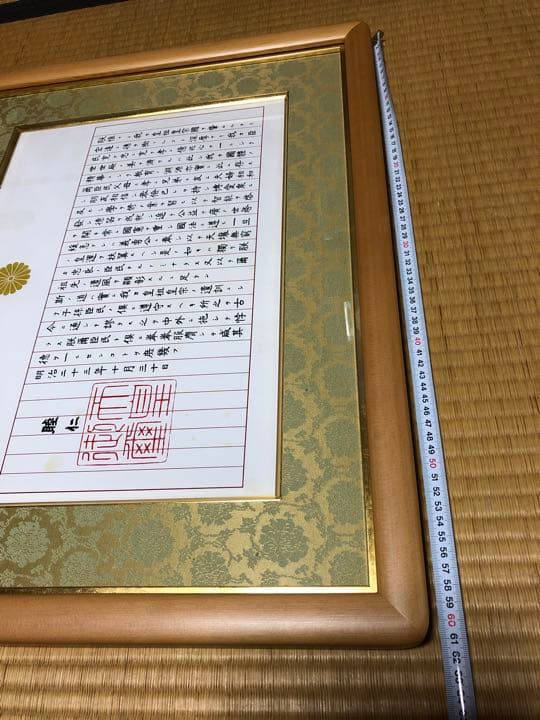 朕惟フニ我カ皇祖皇宗國ヲ肇ムルコト
宏遠ニ德ヲ樹ツルコト深厚ナリ我カ臣
民克ク忠ニ克ク孝ニ億兆心ヲ一ニシテ
世世厥ノ美ヲ濟セルハ此レ我カ國體ノ
精華ニシテ教育ノ淵源亦實ニ此ニ存ス
爾臣民父母ニ孝ニ兄弟ニ友ニ夫婦相和
シ朋友相信シ恭儉己レヲ持シ博愛衆ニ
及ホシ學ヲ修メ業ヲ習ヒ以テ智能ヲ啓
發シ德器ヲ成就シ進テ公益ヲ廣メ世務ヲ
開キ常ニ國憲ヲ重シ國法ニ遵ヒ一旦
緩急アレハ義勇公ニ奉シ以テ天壤無窮ノ
皇運ヲ扶翼スヘシ是ノ如キハ獨リ朕
カ忠良ノ臣民タルノミナラス又以テ爾
祖先ノ遺風ヲ顯彰スルニ足ラン
斯ノ道ハ實ニ我カ皇祖皇宗ノ遺訓ニシテ
子孫臣民ノ俱ニ遵守スヘキ所之ヲ古
今ニ通シテ謬ラス之ヲ中外ニ施シテ悖
ラス朕爾臣民ト俱ニ拳々服膺シテ咸其
德ヲ一ニセンコトヲ庶幾フ
明治二十三年十月三十日
睦仁
40 41 42 43 44 45 46 47 48 49 50 51 52 53 54 55 56 57 58 59 60 61 62